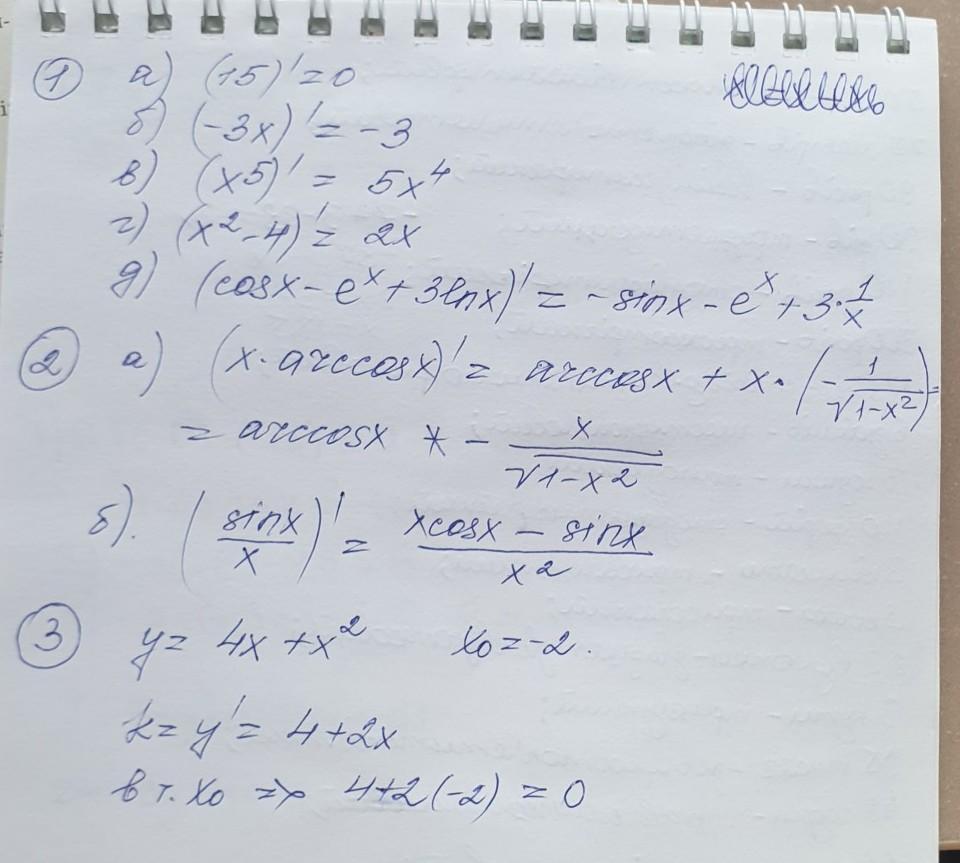 ① а) (15)' = 0
б) (-3x)' = -3
в) (x5)' = 5x⁴
г) (x² - 4)' = 2x
д) (cosx - eˣ + 3lnx)' = -sinx - eˣ + 3·1/x
② а) (x·arccosx)' = arccosx + x·(-1/√(1-x²)) =
= arccosx * - x/√(1-x²)
б). (sinx/x)' = (xcosx - sinx)/x²
③ y = 4x + x² x₀ = -2.
k = y' = 4+2x
в т. x₀ => 4+2(-2) = 0